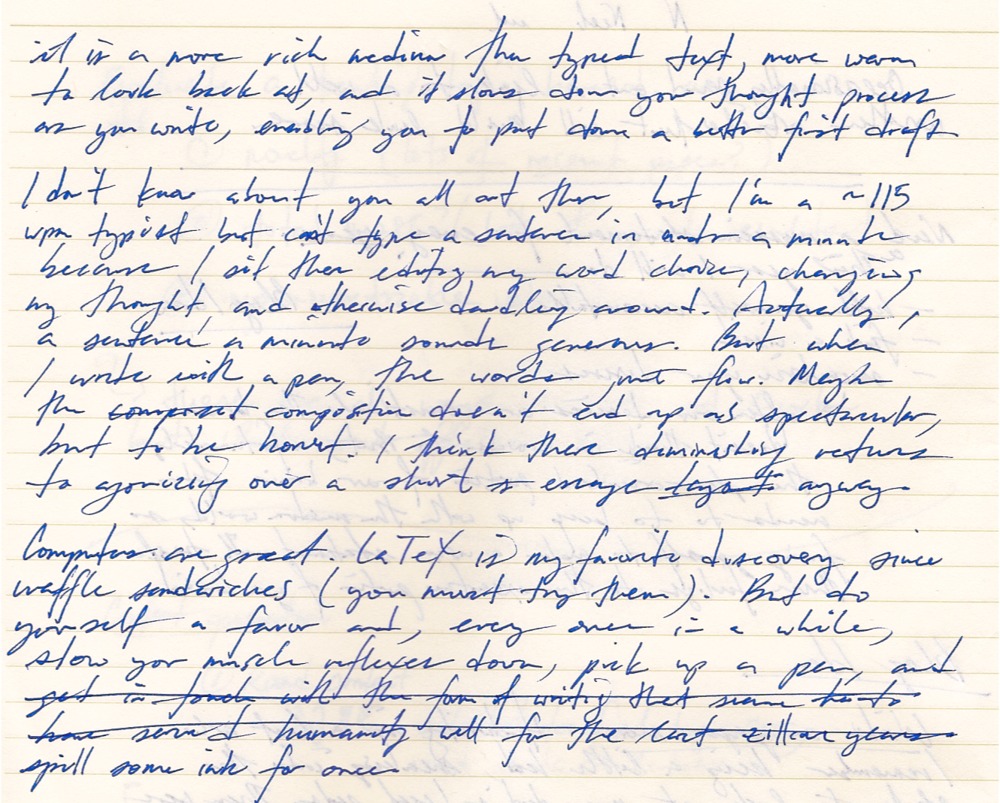 it is a more rich medium than typed text, more warm
to look back at, and it slows down your thought process
as you write, enabling you to put down a better first draft
I don't know about you all out there, but I'm a ~115
wpm typist but can't type a sentence in under a minute
because I sit there editing my word choice, changing
my thought, and otherwise dawdling around. Actually,
a sentence a minute sounds generous. But when
I write with a pen, the words just flow. Maybe
the composit composition doesn't end up as spectacular,
but to be honest. I think there diminishing returns
to agonizing over a short is essay anyway.
Computers are great. LaTeX is my favorite discovery since
waffle sandwiches (you must try them). But do
yourself a favor and, every once in a while,
slow your muscle reflexes down, pick up a pen, and
get in touch with the form of writing that seems to
have served humanity well for the last zillion years
spill some ink for once.